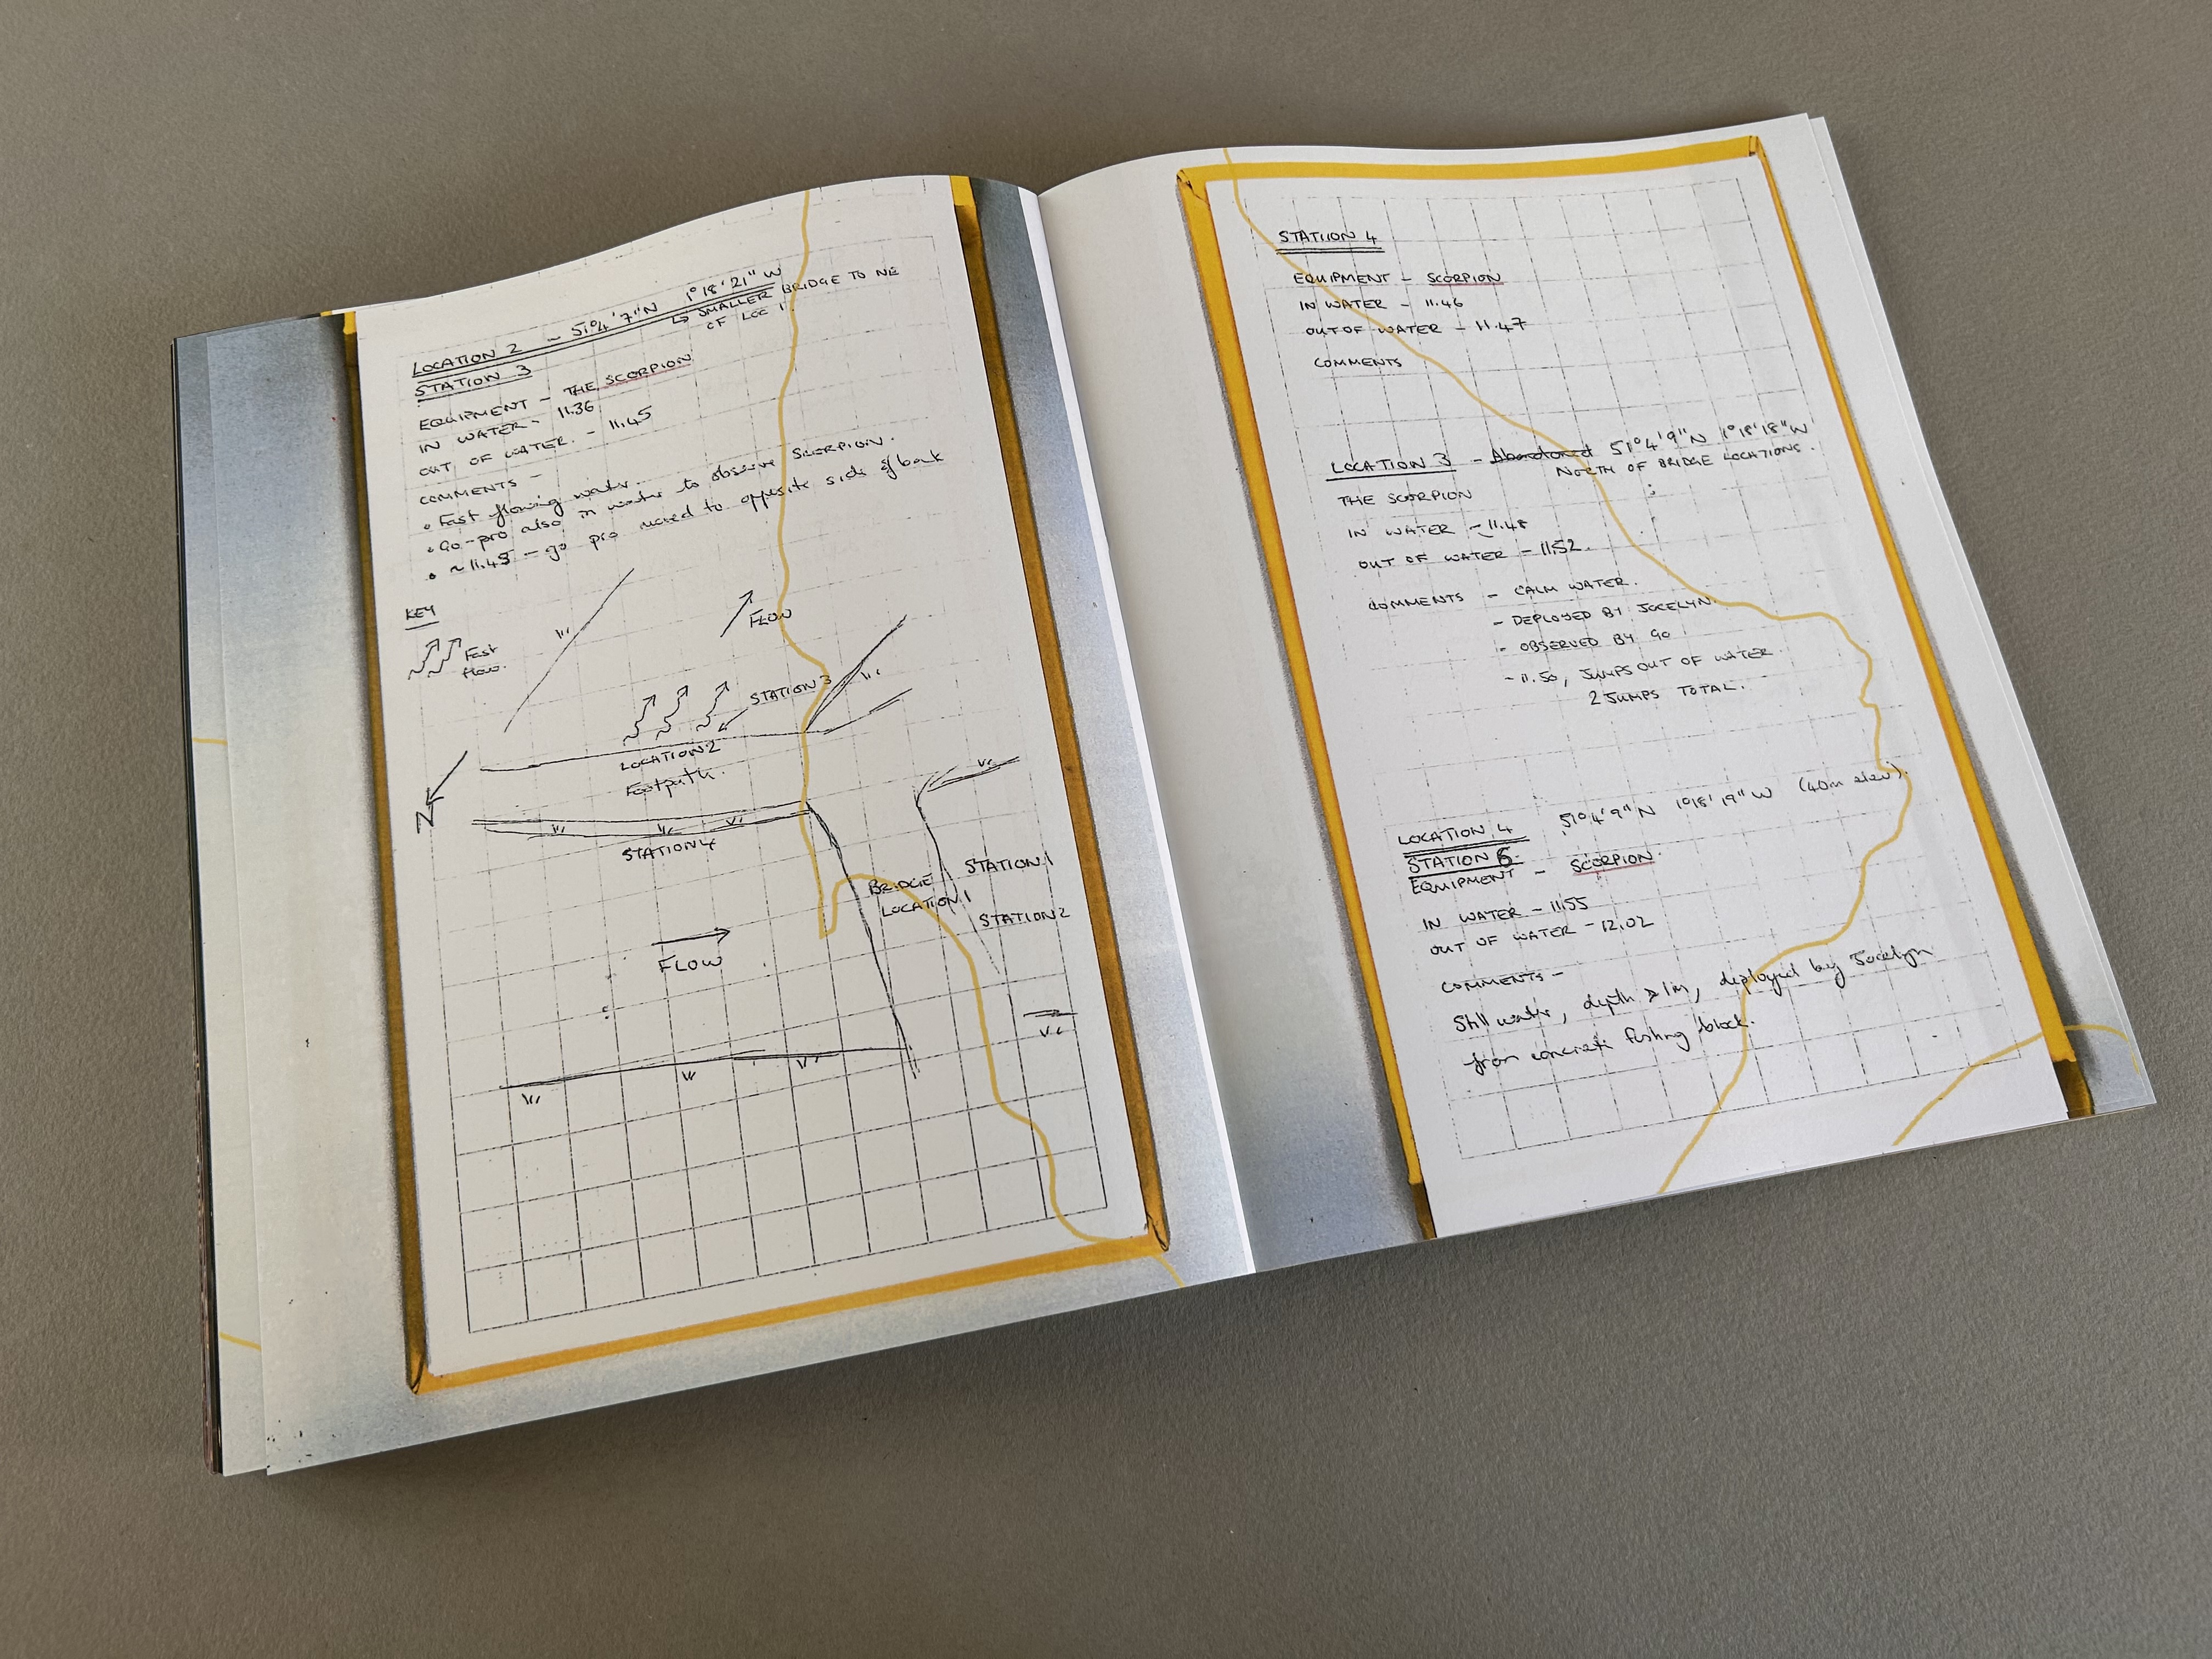 LOCATION 2 - 51°4'7"N 1°18'21"W
↳ SMALLER BRIDGE TO NE
OF LOC 1.
STATION 3
EQUIPMENT - THE SCORPION
IN WATER - 11.36
OUT OF WATER. - 11.45
COMMENTS -
• Fast flowing water.
• Go-pro also in water to observe SCORPION.
• ~11.43 - go pro moved to opposite side of bank
KEY
Fast
flow.
FLOW
STATION 3
LOCATION 2
Footpath.
N
STATION 4
BRIDGE
LOCATION 1
STATION 1
STATION 2
FLOW
STATION 4
EQUIPMENT - SCORPION
IN WATER - 11.46
OUT OF WATER - 11.47
COMMENTS
LOCATION 3 - Abandoned 51°4'9"N 1°18'18"W
NORTH OF BRIDGE LOCATIONS.
THE SCORPION
IN WATER - 11.48
OUT OF WATER - 11.52.
COMMENTS - CALM WATER.
- DEPLOYED BY JOCELYN.
- OBSERVED BY GO
- 11.50, JUMPS OUT OF WATER
2 JUMPS TOTAL.
LOCATION 4 51°4'9"N 1°18'19"W (40m elev).
STATION 6
EQUIPMENT - SCORPION.
IN WATER - 11.55
OUT OF WATER - 12.02
COMMENTS -
Still water, depth >1m, deployed by Jocelyn
from concrete fishing block.